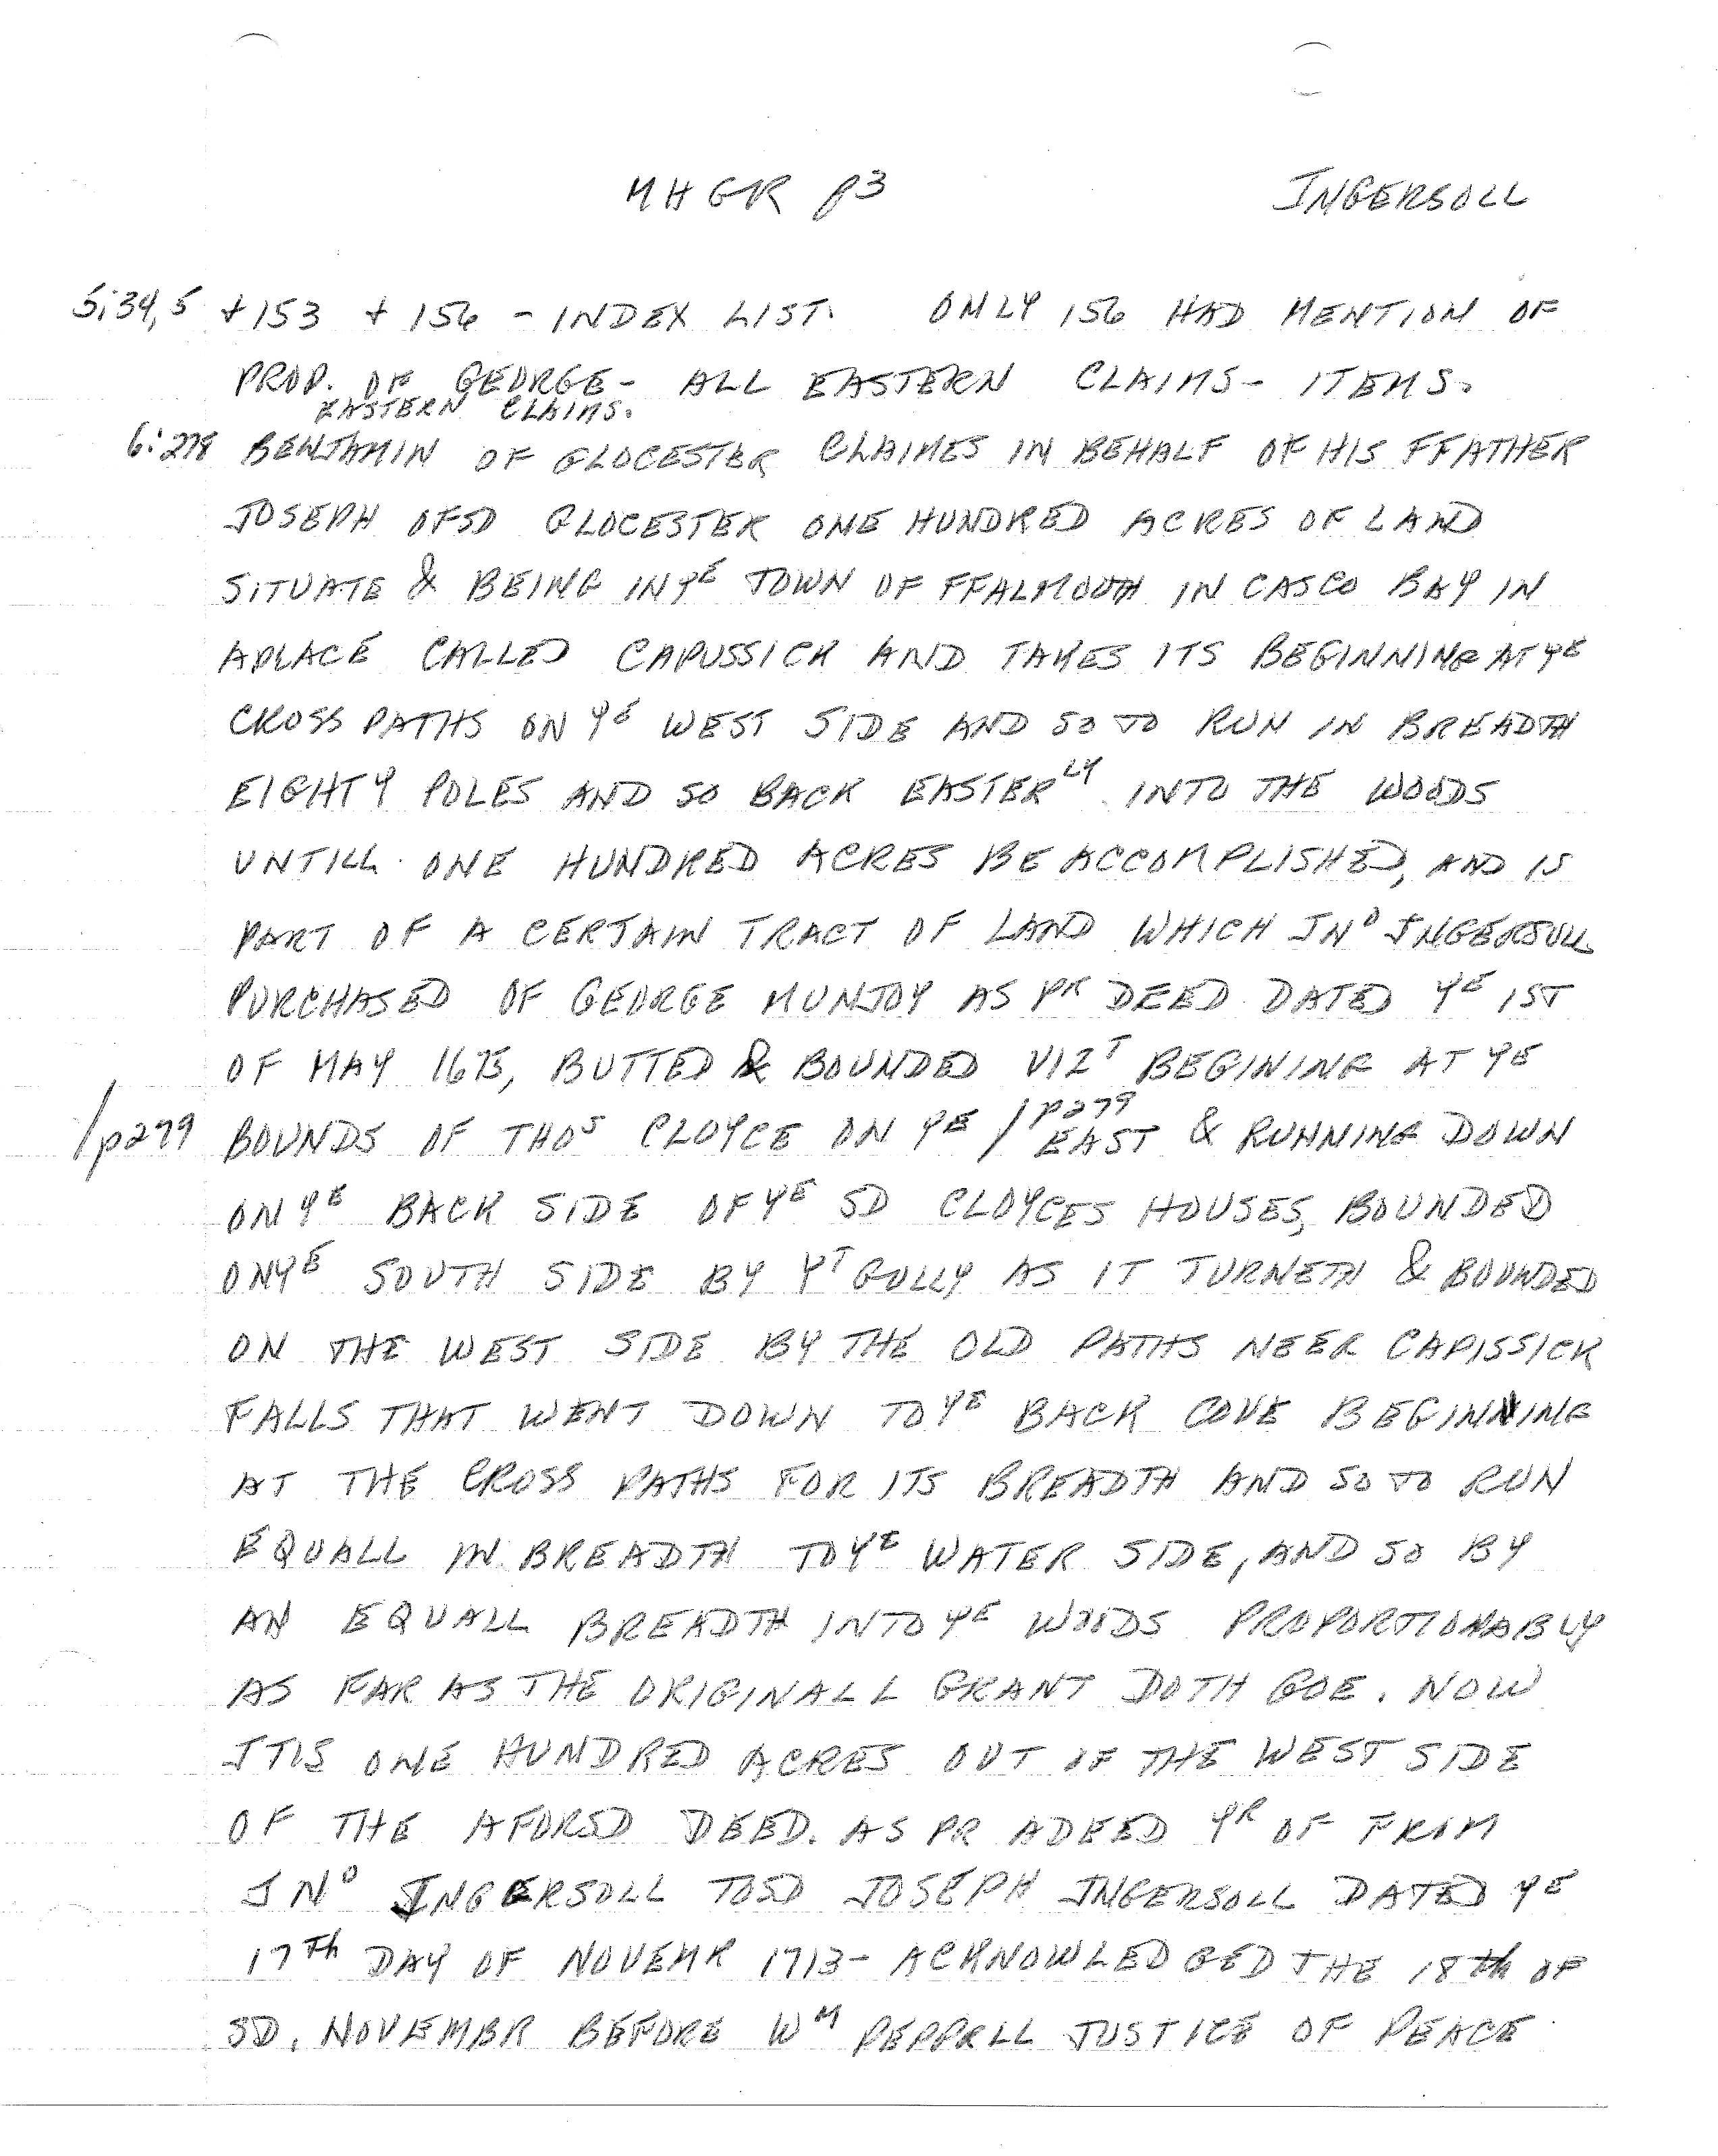 MHGR p3 INGERSOLL
5:34,5 + 153 + 156 - INDEX LIST. ONLY 156 HAD MENTION OF
PROP. OF GEORGE - ALL EASTERN CLAIMS - ITEMS.
EASTERN CLAIMS.
6:278 BENJAMIN OF GLOCESTER CLAIMES IN BEHALF OF HIS FFATHER
JOSEPH OFSD GLOCESTER ONE HUNDRED ACRES OF LAND
SITUATE & BEING IN YE TOWN OF FFALMOUTH IN CASCO BAY IN
APLACE CALLED CAPUSSICK AND TAKES ITS BEGINNING AT YE
CROSS PATHS ON YE WEST SIDE AND SO TO RUN IN BREADTH
EIGHTY POLES AND SO BACK EASTERLY INTO THE WOODS
UNTILL ONE HUNDRED ACRES BE ACCOMPLISHED, AND IS
PART OF A CERTAIN TRACT OF LAND WHICH JNO INGERSULL
PURCHASED OF GEORGE MUNJOY AS PR DEED DATED YE 1ST
OF MAY 1675, BUTTED & BOUNDED VIZT BEGINING AT YE
/p279 BOUNDS OF THOS CLOYCE ON YE /p279 EAST & RUNNING DOWN
ON YE BACK SIDE OF YE SD CLOYCES HOUSES, BOUNDED
ON YE SOUTH SIDE BY YT GULLY AS IT TURNETH & BOUNDED
ON THE WEST SIDE BY THE OLD PATHS NEER CAPISSICK
FALLS THAT WENT DOWN TO YE BACK COVE BEGINNING
AT THE CROSS PATHS FOR ITS BREADTH AND SO TO RUN
EQUALL IN BREADTH TO YE WATER SIDE, AND SO BY
AN EQUALL BREADTH INTO YE WOODS PROPORTIONABLY
AS FAR AS THE ORIGINALL GRANT DOTH GOE. NOW
ITIS ONE HUNDRED ACRES OUT OF THE WEST SIDE
OF THE AFORSD DEED. AS PR ADEED YR OF FROM
JNO INGERSOLL TOSD JOSEPH INGERSOLL DATED YE
17Th DAY OF NOVEMR 1713 - ACKNOWLEDGED THE 18th OF
SD. NOVEMBR BEFORE WM PEPPRLL JUSTICE OF PEACE